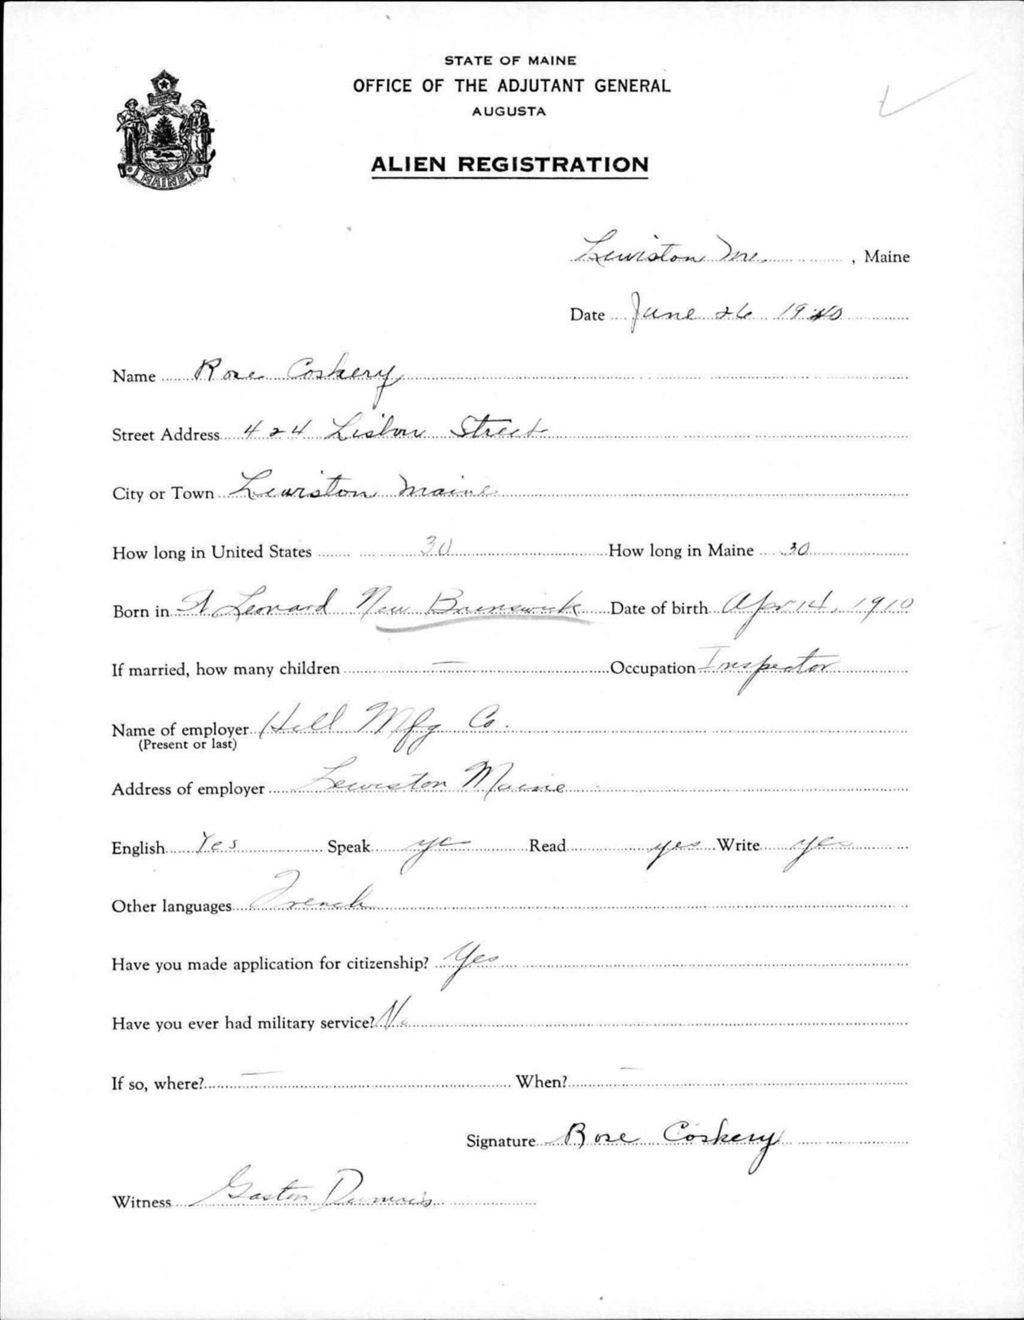 STATE OF MAINE
OFFICE OF THE ADJUTANT GENERAL
AUGUSTA
ALIEN REGISTRATION
MAINE
Lewiston Me. , Maine
Date June 26 1940
Name Rose Coskery
Street Address 424 Lisbon Street
City or Town Lewiston Maine
How long in United States 30 How long in Maine 30
Born in St Leonard New Brunswick Date of birth Apr 14, 1910
If married, how many children — Occupation Inspector
Name of employer Hill Mfg Co.
(Present or last)
Address of employer Lewiston Maine
English Yes Speak yes Read yes Write yes
Other languages French
Have you made application for citizenship? Yes
Have you ever had military service? No
If so, where? — When? —
Signature Rose Coskery
Witness Gaston Dumais